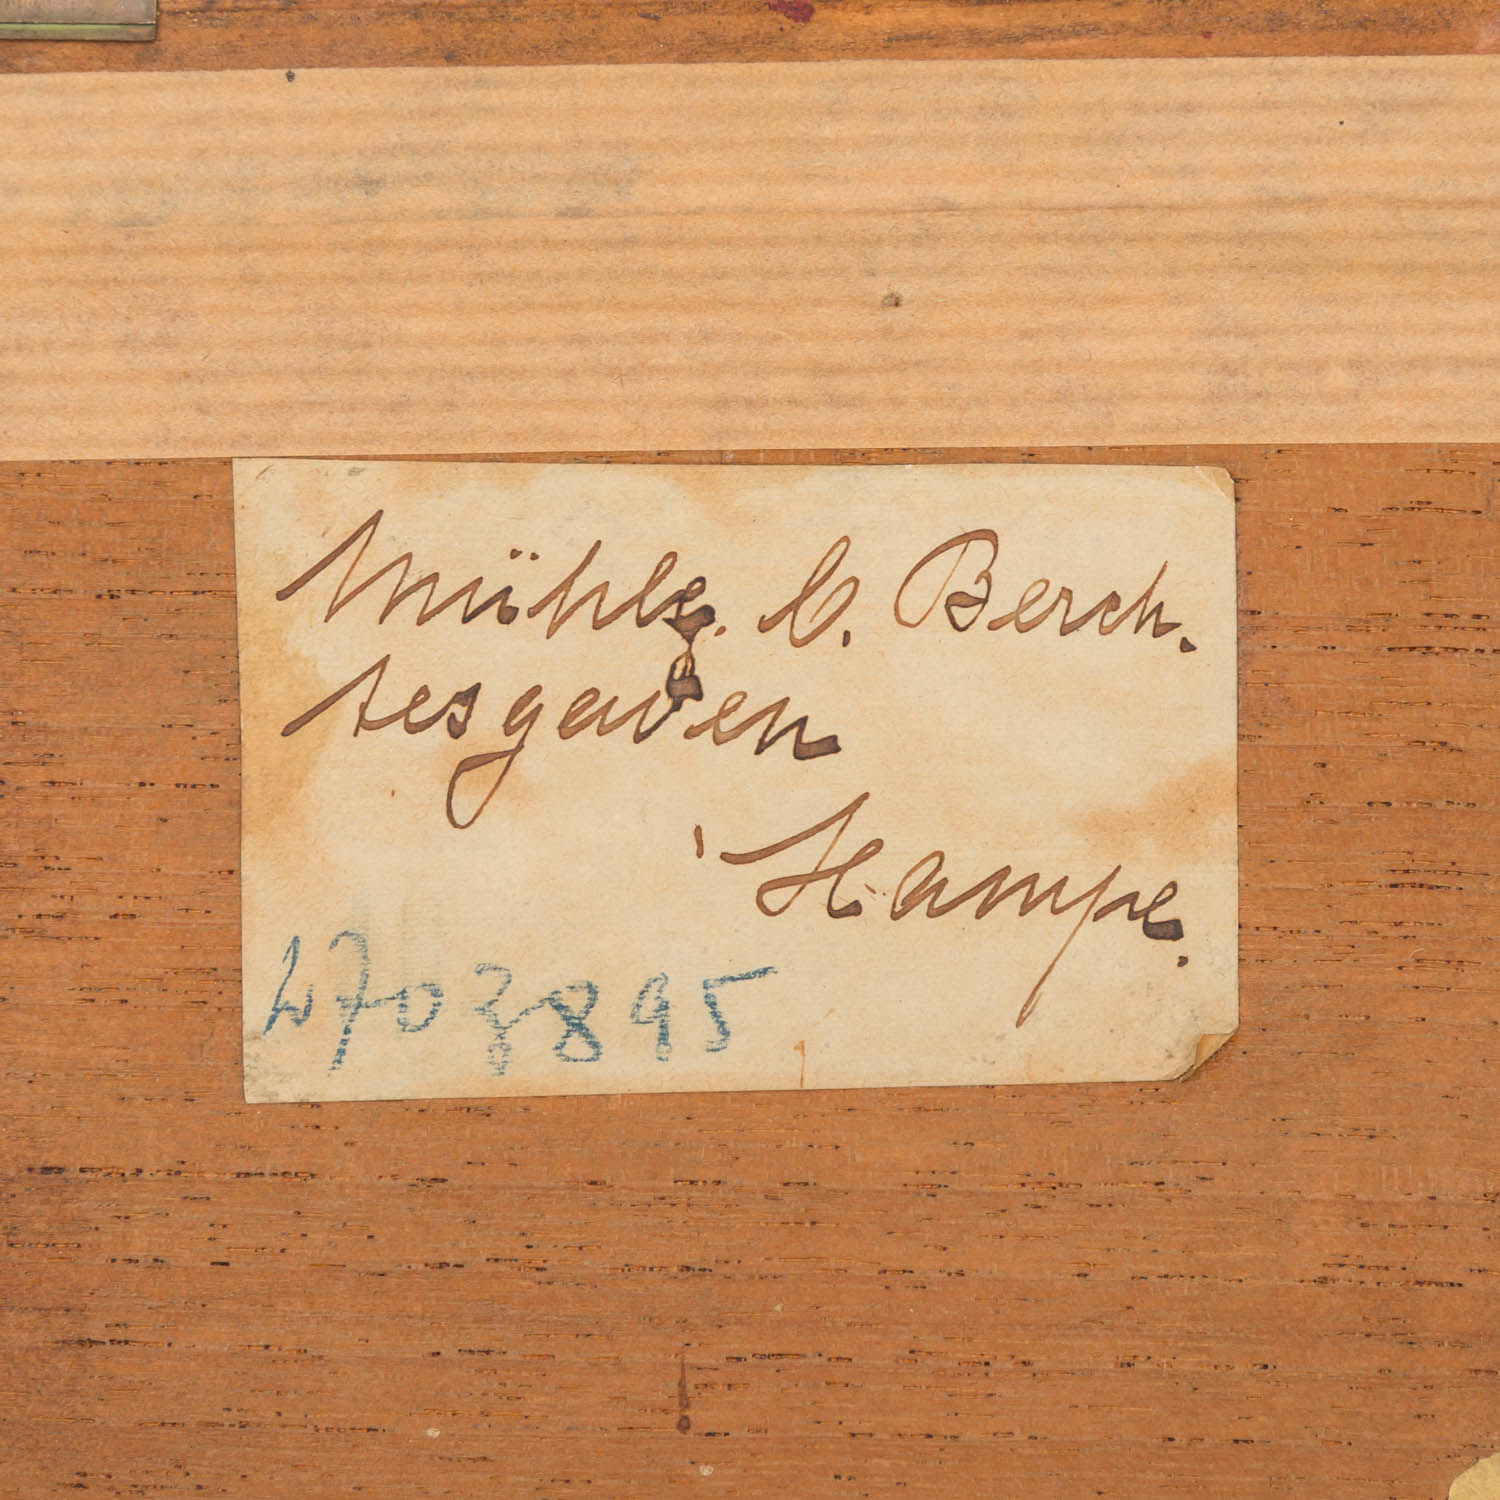 Mühle. b. Berch.
tesgaden
Hampe.
4703895